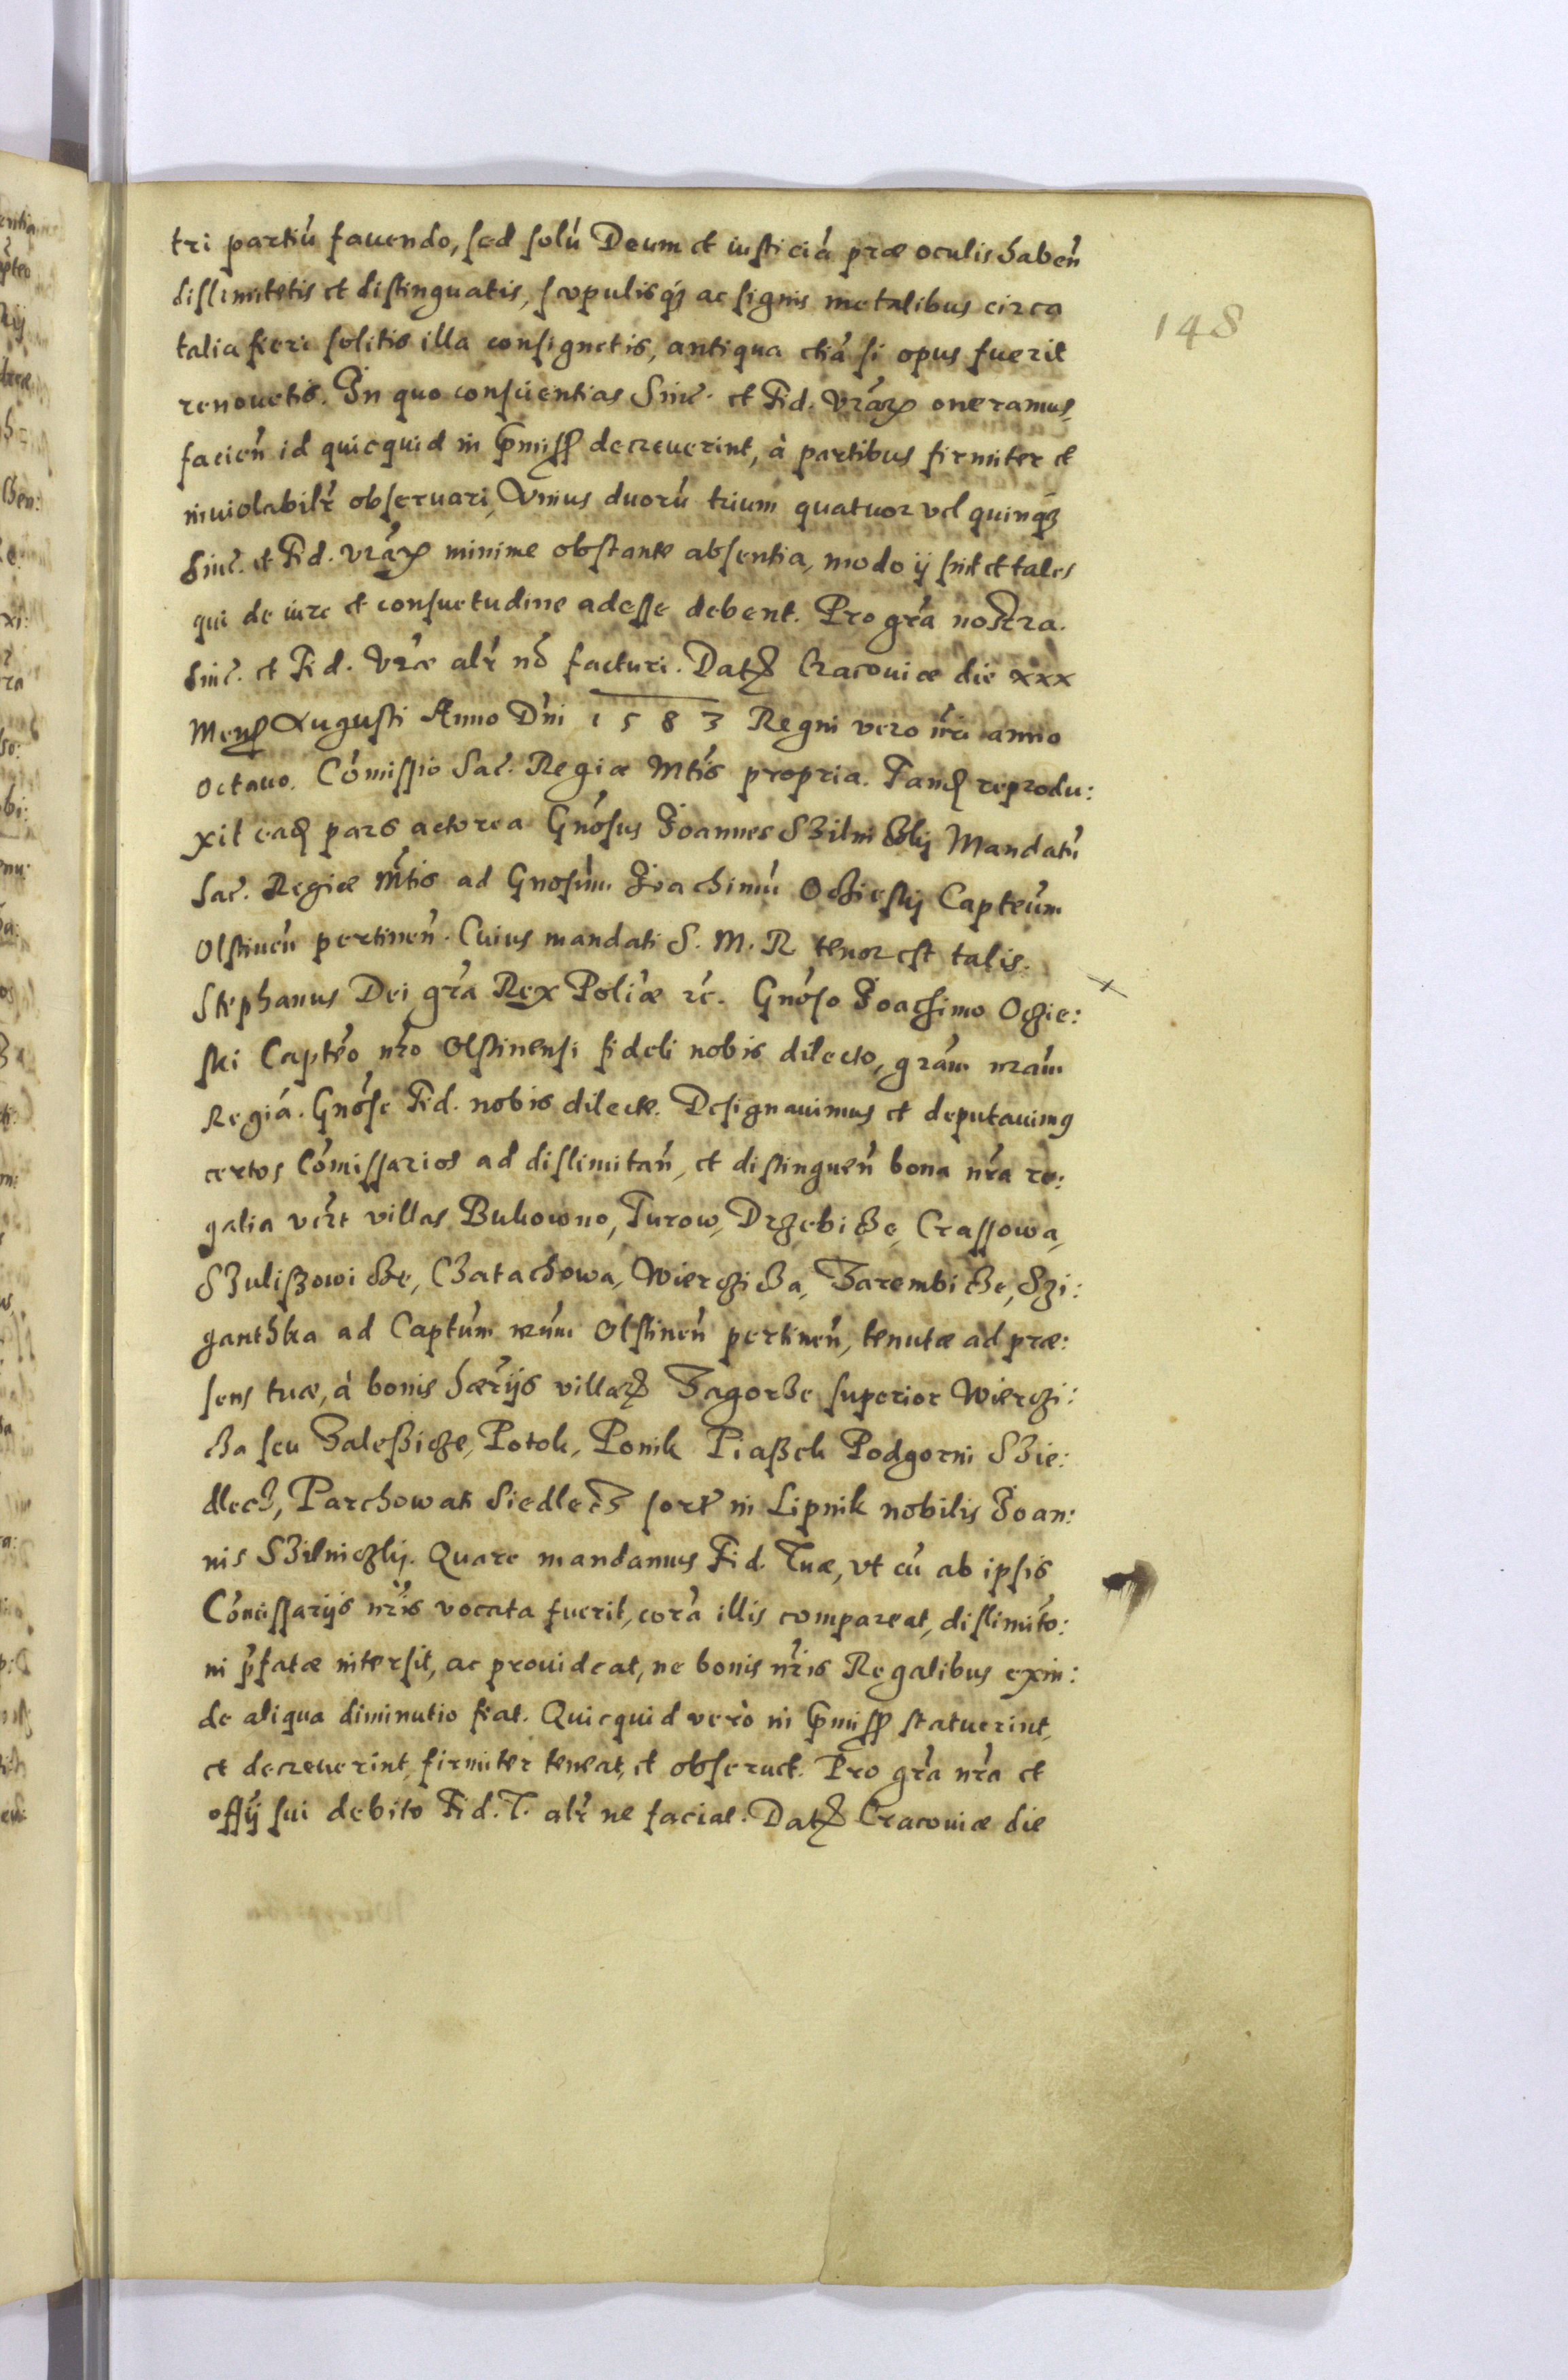 148
tri partiū fauendo, sed solū Deum et iusticiā præ oculis habeñ
dislimitetis et distinguatis, scopulisq́ꝫ ac signis metalibus circa
talia fieri solitis illa consignetis, antiqua etiā si opus fuerit
renouetis. In quo conscientias Sinc̃. et Fid. Vrãrꝝ oneramus,
facieñ id quicquid in p̃miss̃ decreuerint, à partibus firmiter et
inuiolabilr̃ obseruari, Vnius duorū trium quatuor vel quinqꝫ
Sinc̃. et Fid. vrãrꝝ minime obstante absentia, modo ij sint et tales
qui de iure et consuetudine adesse debent. Pro gr̃a nostra.
Sinc̃. et Fid. Vræ alr̃ nõ facturi. Datꝫ Cracouiæ die xxx
Mens̃ Augusti Anno Dñi 1583 Regni vero nr̃i anno
octauo. Cōmissio Sac̃. Regiæ Mtis propria. Tandꝫ reprodu:
xit eadꝫ pars actorea Gñosus Joannes SZilniCZkij Mandatū
Sac̃. Regiæ Mtis ad Gnosum Joachimū OcZieskij Capteūm
Olstineñ pertineñ. Cuius mandati S. M. R. tenor est talis.
Stephanus Dei gr̃a Rex Poliæ ꝛc̃. Gñoso Joachimo Oczie:
ski Captẽo nr̃o Olstinensi fideli nobis dilecto, grãm nrãm
Regiã. Gñose Fid. nobis dilecte. Designauimus et deputauimꝰ
certos Cōmissarios ad dislimitañ, et distingueñ bona nr̃a re:
galia vz̃t villas Bukowno, Turow, DrzebicZe, Crassowa,
SZulißowicZe, CZatachowa, WierczicZa, ZarembicZe, Szi:
ganthka ad Captūm nrūm Olstineñ pertineñ, tenutæ ad præ:
sens tuæ, à bonis hær̃ijs villarꝝ ZagorZe superior Wierczi:
cZa seu Zaleßicze, Potok, Ponik Piaßek Podgorni SZie:
dlecZ, Parchowati SiedlecZ sort̃ in Lipnik nobilis Joan:
nis SZilniczkij. Quare mandamus Fid. Tuæ, vt cū ab ipsis
Cōmissarijs nr̃is vocata fuerit, corã illis compareat, dislimitõ:
ni p̃fatæ intersit, ac prouideat, ne bonis nr̃is Regalibus exin:
de aliqua diminutio fiat. Quicquid verò in p̃miss̃ statuerint,
et decreuerint, firmiter teneat, et obseruet. Pro gr̃a nr̃a et
offij sui debito Fid. T. alr̃ ne faciat. Datꝫ Cracouiæ die